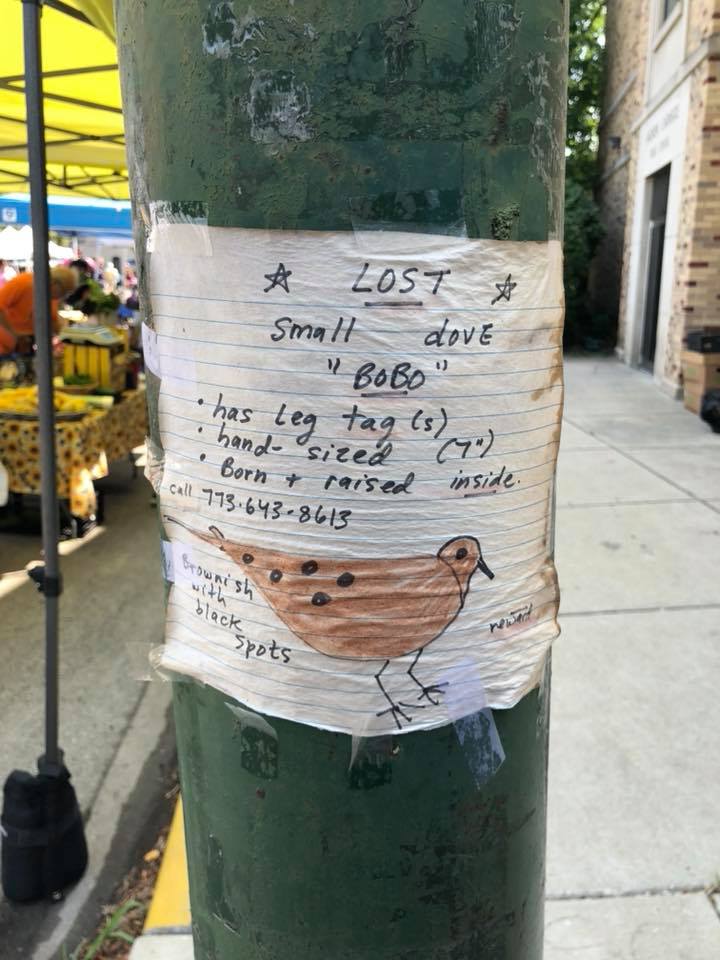 ☆ LOST ☆
small dove
"BOBO"
• has leg tag(s)
• hand-sized (7")
• Born + raised inside.
call 773.643.8613
Brownish
with
black
spots
reward